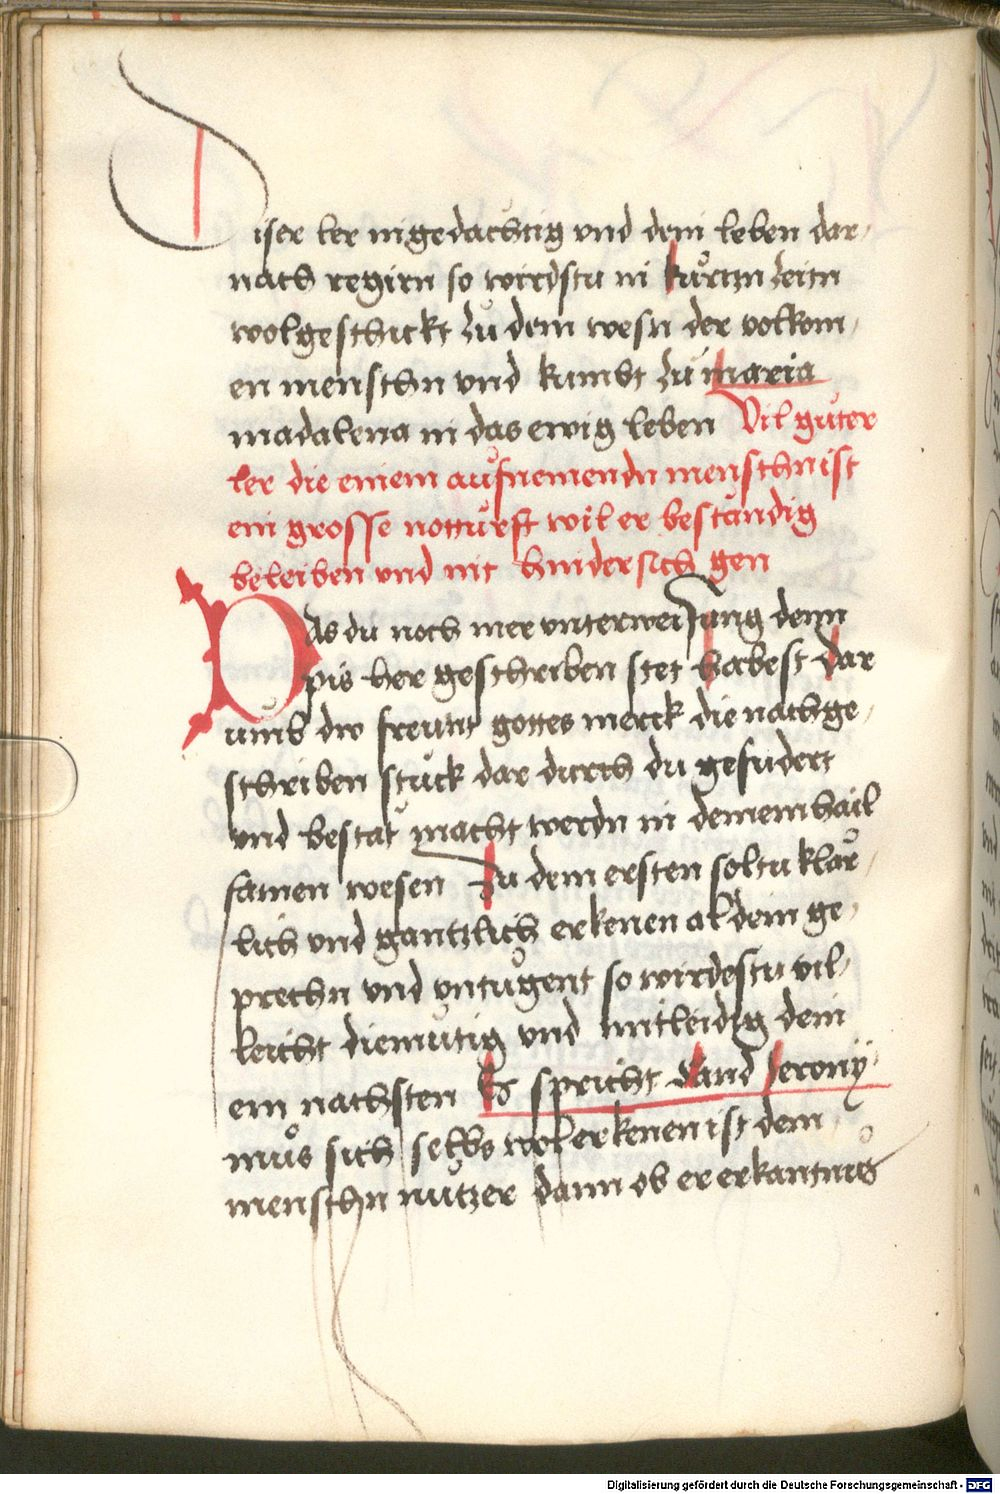 Diser ler ingedachtig vnd dein leben dar¬
nach regirn so wirdstu in kůrtzn zeitn
wolgeschickt zů dem wesn der volkom¬
en menschn vnd kumbt zů maria
madalena in das ewig leben Vil gůter
ler die einem aůfnemendn menschn ist
ein grosse notturft wil er bestandig
beleiben vnd nit hindersich gen
DAs du noch mer vnterweisung denn
pis her geschriben stet habest dar
umb dw freunt gottes merck die nachge¬
schriben stůck dar durch du gefudert
vnd bestat macht werdn in deinem hail
samen wesen Zu dem ersten soltu klar¬
lich vnd gantzlich erkenen al dein ge¬
prechn vnd vntůgent so wirdestu vil¬
leicht diemůtig vnd mitleidig dein
em nachsten Es spricht Sand Jerony¬
můs sich selbs wol erkenen ist dem
menschn nůtzer dann ob er erkantnus
Digitalisierung gefördert durch die Deutsche Forschungsgemeinschaft - DFG